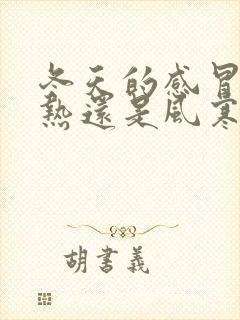 冬天的感冒
熱還是風寒
胡書義